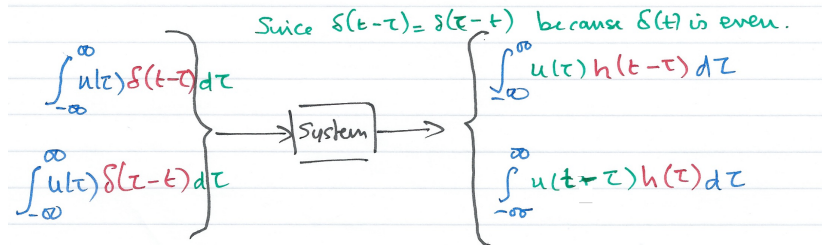 Suice δ(t-τ) = δ(τ-t) because δ(t) is even.
∫_{-∞}^{∞} u(τ) δ(t-τ) dτ
∫_{-∞}^{∞} u(τ) h(t-τ) dτ
System
∫_{-∞}^{∞} u(τ) δ(τ-t) dτ
∫_{-∞}^{∞} u(t-τ) h(τ) dτ